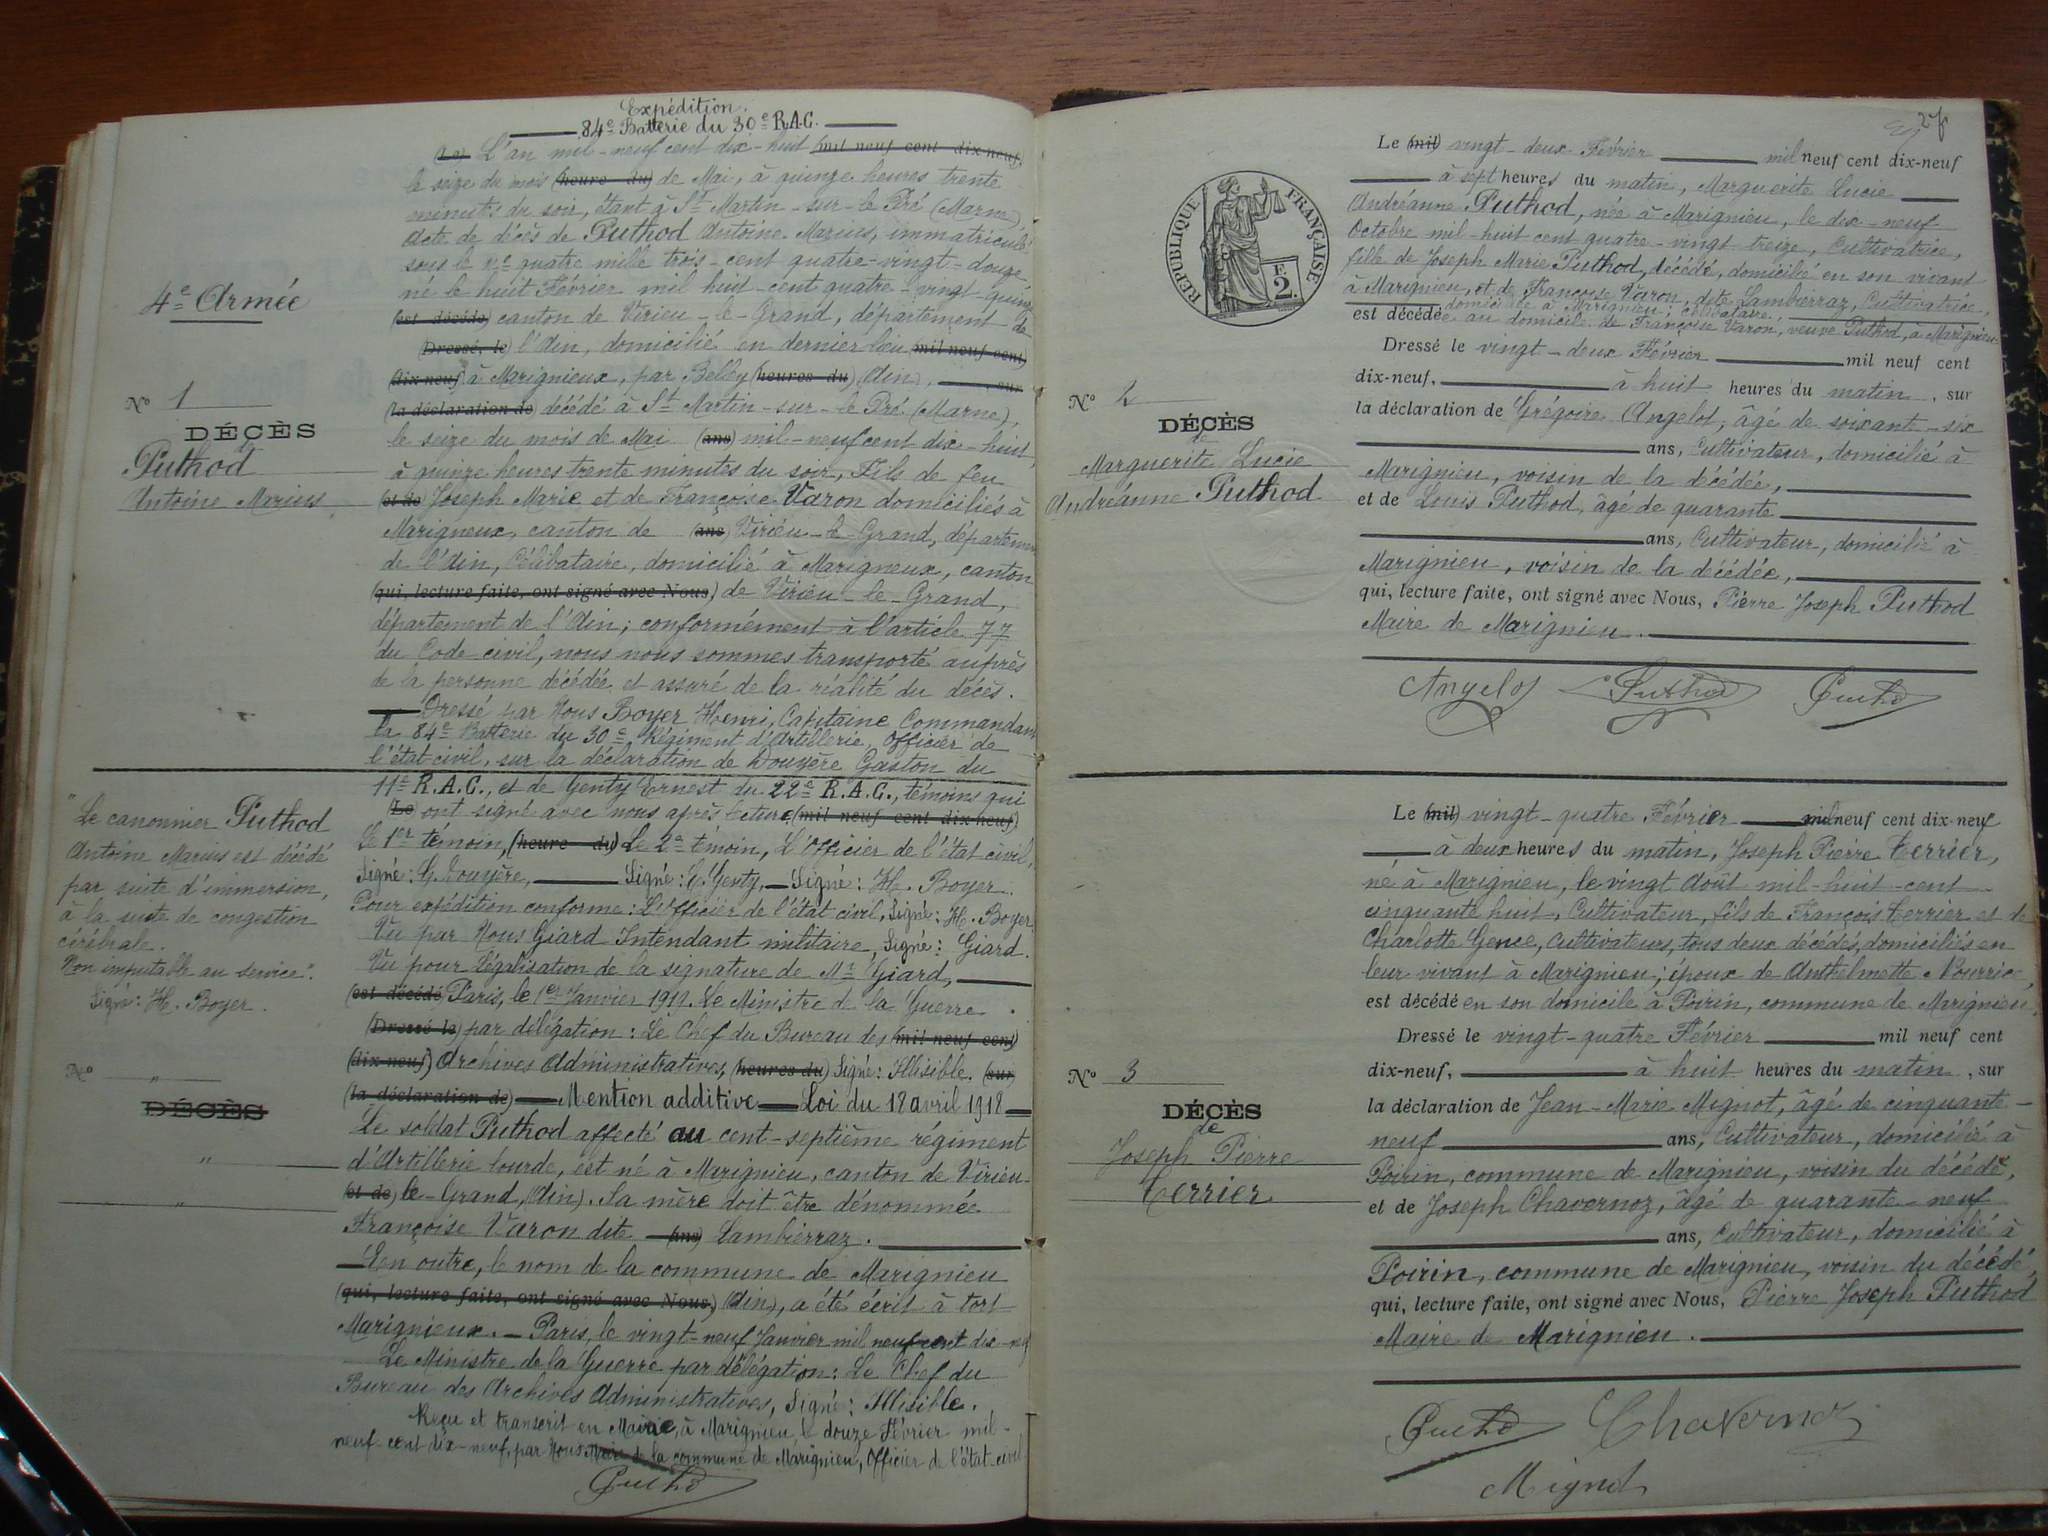 Expédition.
84e Batterie du 30e R.A.C.
(Le) L'an mil-neuf cent dix-huit (mil neuf cent dix-neuf,
le seize du mois (heure du) de Mai, à quinze heures trente
minutes du soir, étant à St Martin-sur-le Pré (Marne)
Acte de décès de Puthod Antoine Marius, immatriculé
sous le no quatre mille trois-cent quatre-vingt-douze,
né le huit Février mil huit-cent quatre-vingt-quinze
(est décédé) canton de Virieu-le-Grand, département de
(Dressé, le) l'Ain, domicilié en dernier lieu (mil neuf cent)
(dix-neuf) à Marignieux, par Belley (heures du) (Ain), , sur
(la déclaration de) décédé à St Martin-sur-le Pré (Marne),
le seize du mois de Mai (ans) mil-neuf cent dix-huit,
à quinze heures trente minutes du soir, Fils de feu
(et de) Joseph Marie et de Françoise Varon domiciliés à
Marigneux, canton de (ans) Virieu-le-Grand, départemen
de l'Ain, Célibataire, domicilié à Marigneux, canton
(qui, lecture faite, ont signé avec Nous,) de Virieu-le-Grand,
département de l'Ain; conformément à l'article 77
du Code civil, nous nous sommes transporté auprès
de la personne décédée et assuré de la réalité du décès.
Dressé par Nous Boyer Henri, Capitaine Commandant
la 84e Batterie du 30e Régiment d'Artillerie, Officier de
l'état-civil, sur la déclaration de Gaston du
11e R.A.C., et de Genty Ernest du 22e R.A.C., témoins qui
(Le) ont signé avec nous après lecture (mil neuf cent dix-neuf)
Le 1er témoin, (heure du) Le 2e témoin, L'Officier de l'état civil,
Signé: G. Signé: E. Genty, Signé: H. Boyer.
Pour expédition conforme: L'Officier de l'état civil, Signé: H. Boyer
Vu par Nous Giard Intendant militaire, Signé: Giard.
Vu pour Légalisation de la signature de Mr Giard,
(est décédé) Paris, le 1er Janvier 1919. Le Ministre de la Guerre.
(Dressé le) par délégation: Le Chef du Bureau des (mil neuf cent)
(dix-neuf) Archives Administratives, (heures du) Signé: Illisible. (sur
(la déclaration de) Mention additive Loi du 18 avril 1918
Le soldat Puthod affecté au cent-septième régiment
d'Artillerie lourde, est né à Marignieu, canton de Virieu-
(et de) le-Grand, (Ain). Sa mère doit être dénommée
Françoise Varon dite (ans) Lambierraz.
En outre, le nom de la commune de Marignieu
(qui, lecture faite, ont signé avec Nous,) (Ain), a été écrit à tort
Marignieux. Paris, le vingt-neuf Janvier mil neuf cent dix-neuf
Le Ministre de la Guerre par délégation: Le Chef du
Bureau des Archives Administratives, Signé: Illisible.
Reçu et transcrit en Mairie, à Marignieu, le douze Février mil-
neuf-cent dix-neuf, par Nous Maire de la commune de Marignieu, Officier de l'état-civil
4e Armée
No 1
DÉCÈS
de
Puthod
Antoine Marius
"Le canonnier Puthod
Antoine Marius est décédé
par suite d'immersion,
à la suite de congestion
cérébrale.
Non imputable au service".
Signé: H. Boyer.
No "
DÉCÈS
"
"
2
RÉPUBLIQUE FRANÇAISE
E
2.
No 2
DÉCÈS
de
Marguerite Lucie
Andréanne Puthod
Le (mil) vingt-deux Février mil neuf cent dix-neuf
à sept heures du matin, Marguerite Lucie
Andréanne Puthod, née à Marignieu, le dix-neuf
Octobre mil-huit cent quatre-vingt treize, Cultivatrice,
fille de Joseph Marie Puthod, décédé, domicilié en son vivant
à Marignieu, et de Françoise Varon, dite Lambierraz, Cultivatrice,
domiciliée à Marignieu; célibataire,
est décédée au domicile de Françoise Varon, veuve Puthod, à Marignieu
Dressé le vingt-deux Février mil neuf cent
dix-neuf, à huit heures du matin, sur
la déclaration de Grégoire Angelot, âgé de soixant-six
ans, Cultivateur, domicilié à
Marignieu, voisin de la décédée,
et de Louis Puthod, âgé de quarante
ans, Cultivateur, domicilié à
Marignieu, voisin de la décédée,
qui, lecture faite, ont signé avec Nous, Pierre Joseph Puthod
Maire de Marignieu.
Angelot Puthod Putho
No 3
DÉCÈS
de
Joseph Pierre
Terrier
Le (mil) vingt-quatre Février mil neuf cent dix-neuf
à deux heures du matin, Joseph Pierre Terrier,
né à Marignieu, le vingt Août mil-huit-cent
cinquante huit, Cultivateur, fils de François Terrier et de
Charlotte Gence, Cultivateurs, tous deux décédés, domiciliés en
leur vivant à Marignieu; époux de Anthelmette Nourric,
est décédé en son domicile à Poirin, commune de Marignieu.
Dressé le vingt-quatre Février mil neuf cent
dix-neuf, à huit heures du matin, sur
la déclaration de Jean-Marie Mignot, âgé de cinquante-
neuf ans, Cultivateur, domicilié à
Poirin, commune de Marignieu, voisin du décédé,
et de Joseph Chavernoz, âgé de quarante-neuf
ans, Cultivateur, domicilié à
Poirin, commune de Marignieu, voisin du décédé,
qui, lecture faite, ont signé avec Nous, Pierre Joseph Puthod
Maire de Marignieu.
Putho Chavernoz
Mignot